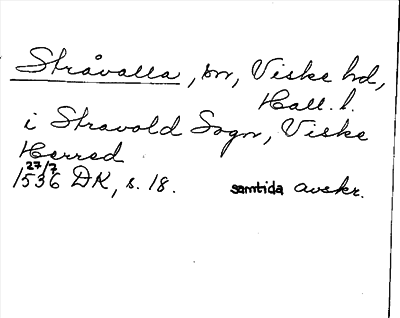 Stråvalla, sn, Viske hd,
Hall. l.
i Stravold Sogn, Viske
Herred
27/7
1536 DK, s. 18. samtida avskr.